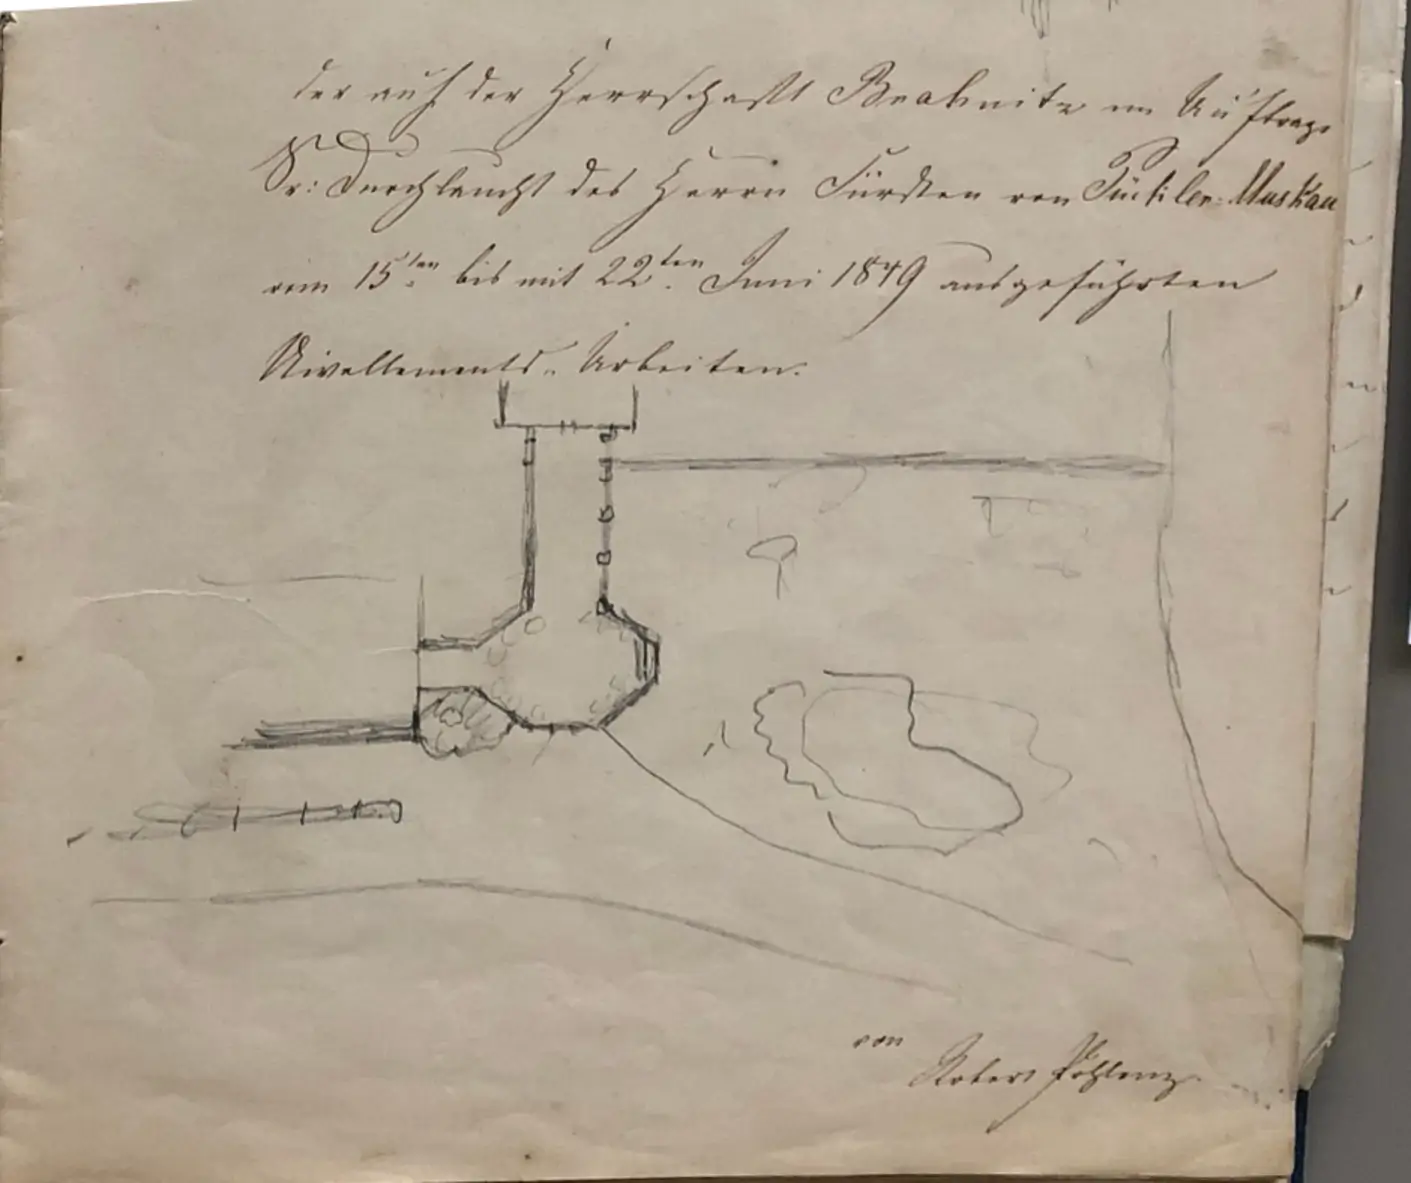 der auf der Herrschaft Branitz im Auftrage
Sr: Durchlaucht des Herrn Fürsten von Pückler-Muskau
vom 15ten bis mit 22ten Juni 1849 ausgeführten
Nivellements-Arbeiten.
von
Robert Pohlenz